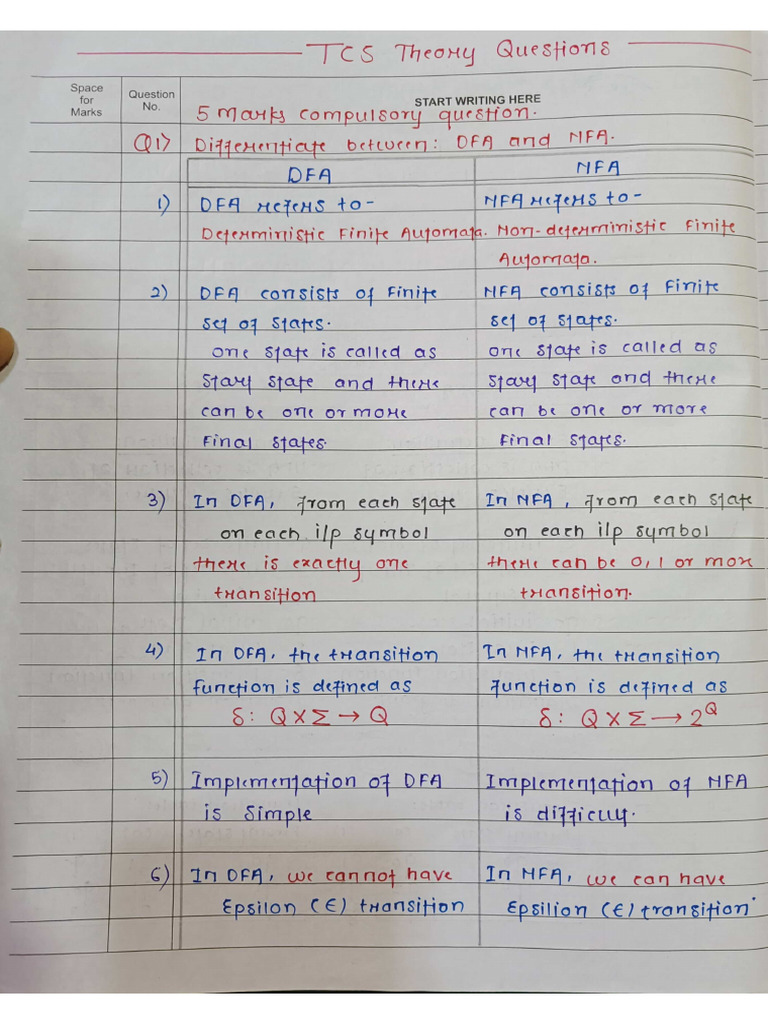 TCS Theory Questions
Space for Marks
Question No.
START WRITING HERE
5 marks compulsory question.
Q1) Differentiate between: DFA and NFA.
DFA NFA
1) DFA refers to- NFA refers to-
Deterministic Finite Automata. Non-deterministic Finite
Automata.
2) DFA consists of Finite NFA consists of Finite
set of states. set of states.
one state is called as one state is called as
start state and there start state and there
can be one or more can be one or more
final states. final states.
3) In DFA, from each state In NFA, from each state
on each i/p symbol on each i/p symbol
there is exactly one there can be 0,1 or more
transition transition.
4) In DFA, the transition In NFA, the transition
function is defined as function is defined as
δ: Q X Σ → Q δ: Q X Σ → 2^Q
5) Implementation of DFA Implementation of NFA
is simple is difficult.
6) In DFA, we cannot have In NFA, we can have
Epsilon (∈) transition Epsilion (∈) transition